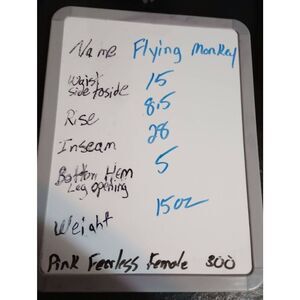 Name Flying Monkey
Waist side to side 15
Rise 8.5
Inseam 28
Bottom Hem Leg opening 5
Weight 15oz
Pink Fearless Female 800